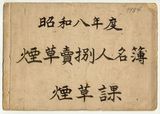 昭和八年度
煙草賣捌人名簿
煙草課